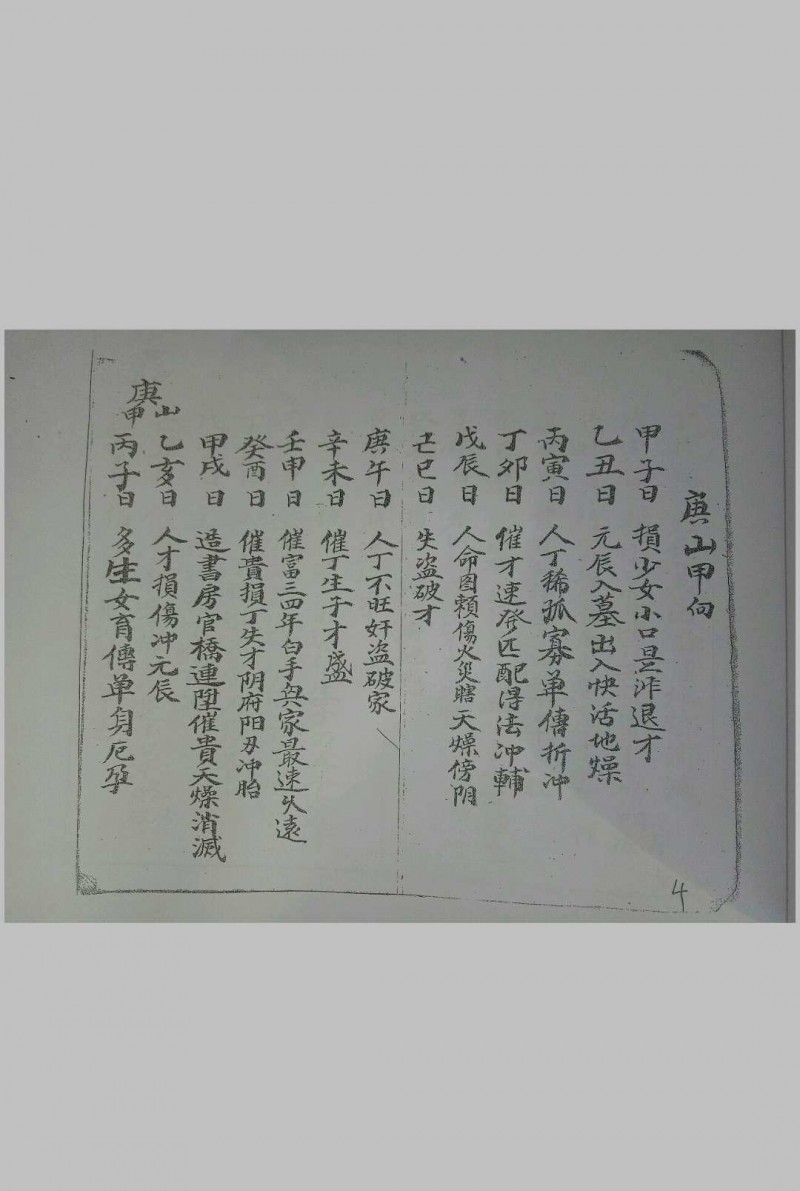 庚山甲向
甲子日 損少女小口是非退才
乙丑日 元辰入墓出入快活地燥
丙寅日 人丁稀孤寡单傳折冲
丁夘日 催才速發匹配得法冲輔
戊辰日 人命图賴傷火災瞎天燥傍阴
己巳日 失盗破才
庚午日 人丁不旺奸盗破家
辛未日 催丁生子才盛
壬申日 催富三四年白手興家最速久遠
癸酉日 催貴損丁失才阴府阳刃冲胎
甲戌日 造書房官橋連陞催貴天燥消滅
乙亥日 人才損傷冲元辰
庚山
甲
丙子日 多生女育傳单身厄孕
4